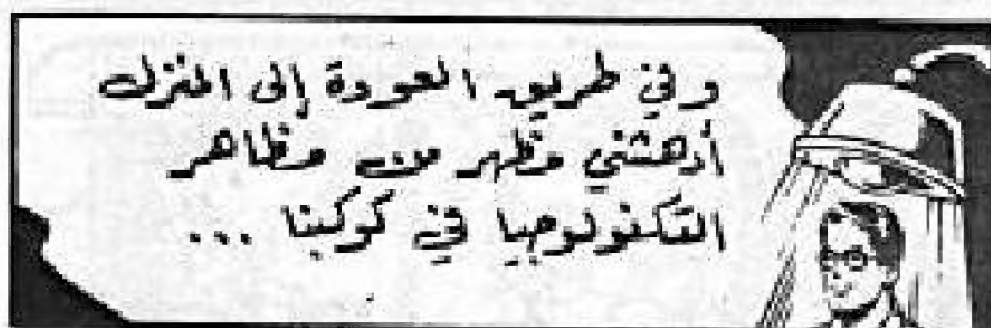 وفي طريق العودة إلى المنزل
أدهشني مظهر من مظاهر
التكنولوجيا في كوكبنا ...